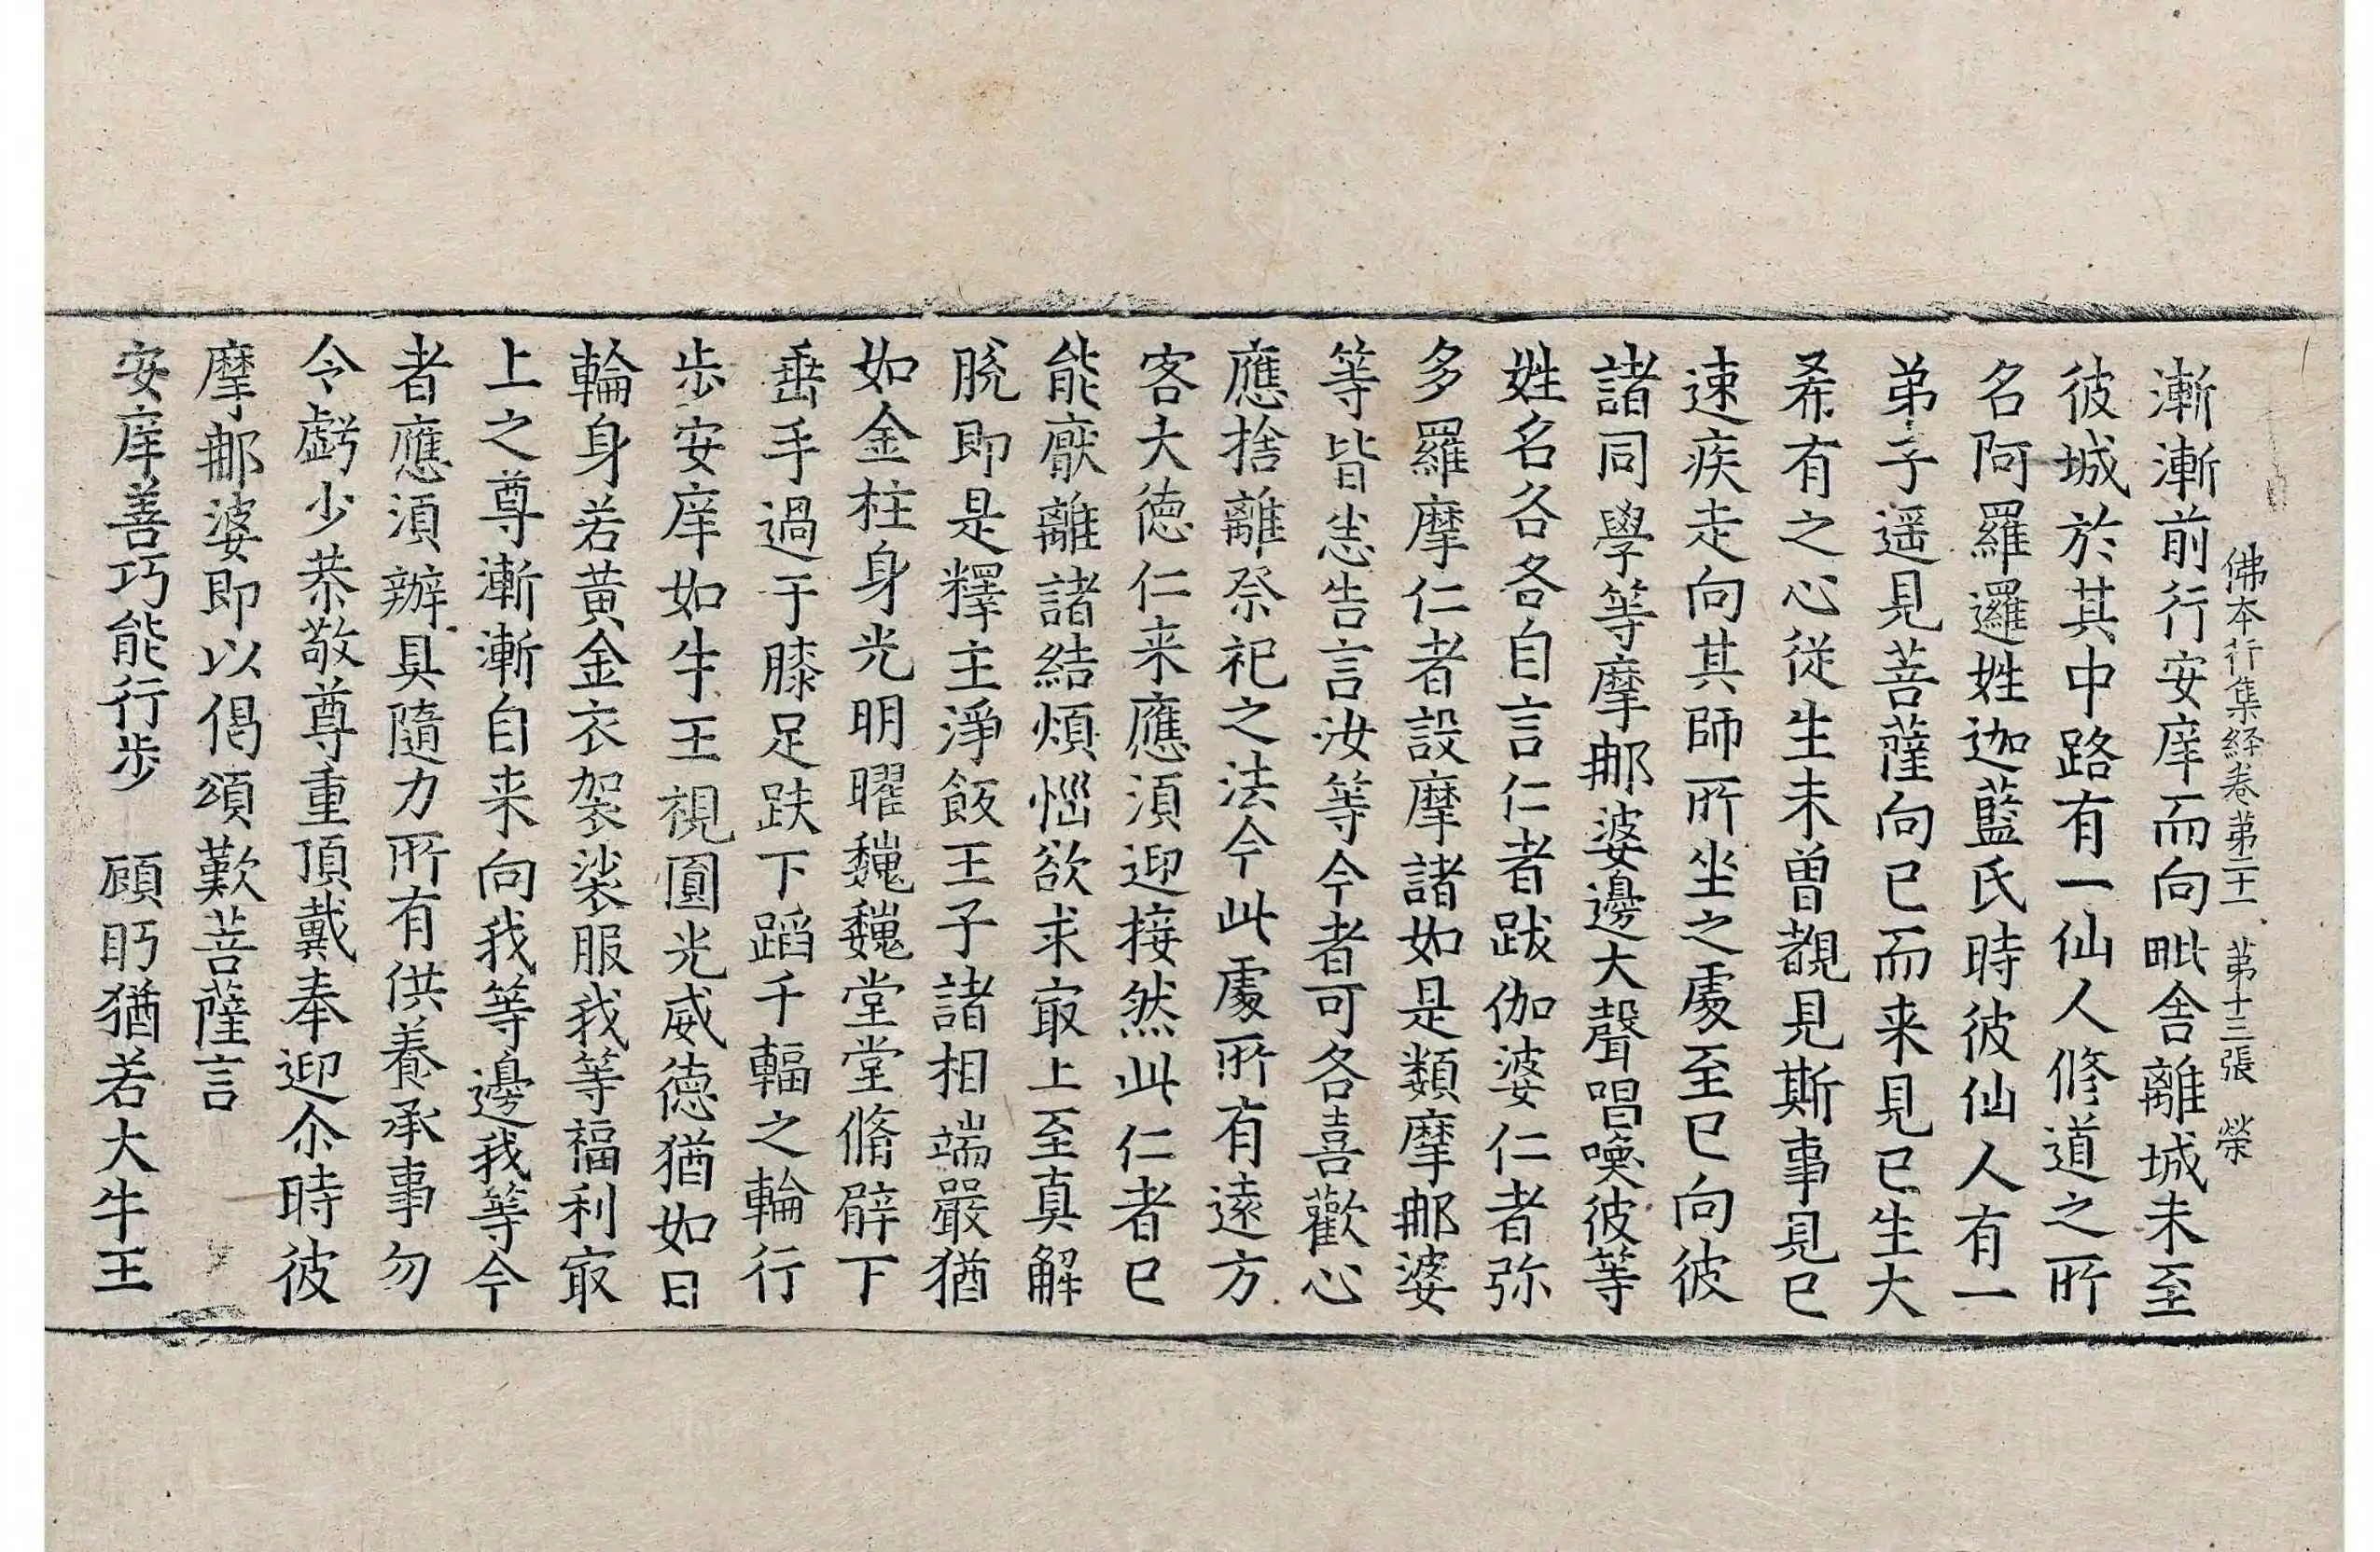 佛本行集経卷苐二十一 苐十三張 榮
漸漸前行安庠而向毗舍離城未至
彼城於其中路有一仙人修道之所
名阿羅邏姓迦藍氏時彼仙人有一
弟子遥見菩薩向已而来見已生大
希有之心從生未曾覩見斯事見已
速疾走向其師所坐之處至已向彼
諸同學等摩那婆邊大聲唱喚彼等
姓名各各自言仁者跋伽婆仁者弥
多羅摩仁者設摩諸如是類摩那婆
等皆悉告言汝等今者可各喜歡心
應捨離祭祀之法今此處所有遠方
客大德仁来應須迎接然此仁者已
能猒離諸結煩惱欲求㝡上至真解
脫即是釋主淨飯王子諸相端嚴猶
如金柱身光明曜巍巍堂堂脩臂下
垂手過于膝足趺下蹈千輻之輪行
步安庠如牛王視圓光威德猶如日
輪身若黃金衣袈裟服我等福利㝡
上之尊漸漸自来向我等邊我等今
者應須辦具隨力所有供養承事勿
令虧少恭敬尊重頂戴奉迎尒時彼
摩那婆即以偈頌歎菩薩言
安庠善巧能行步 顧眄猶若大牛王